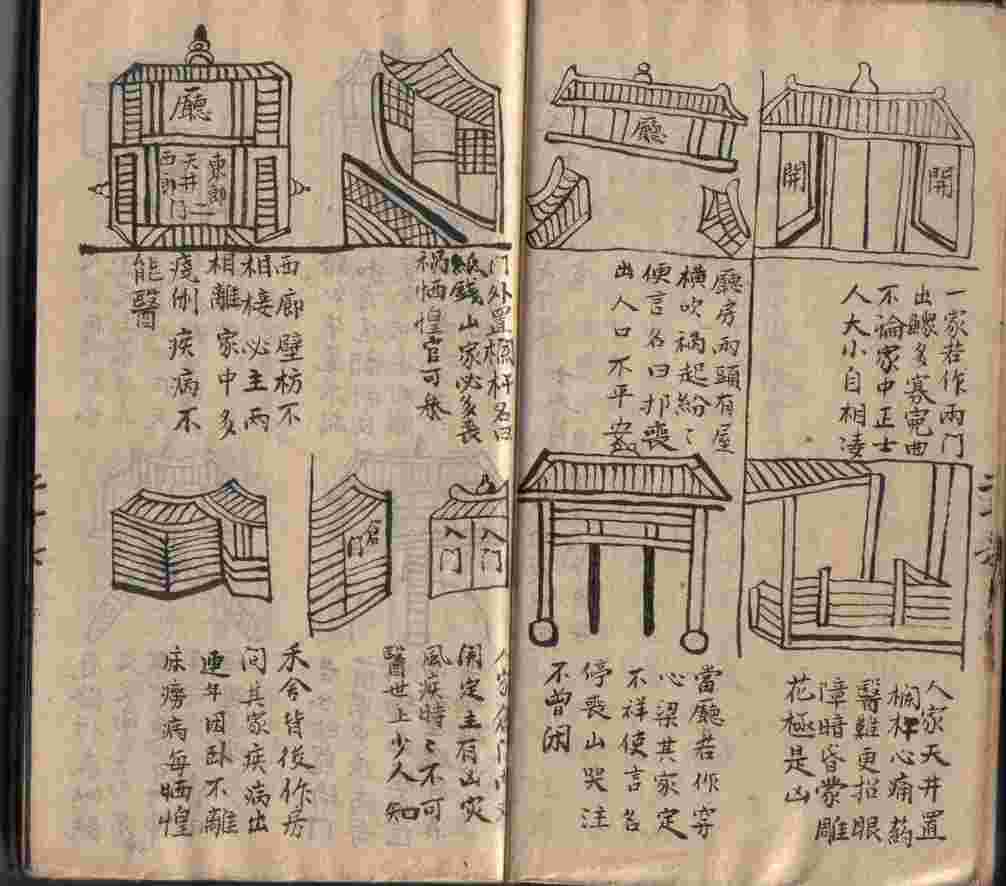 開
開
一家若作兩门
出鰥多寡寃曲
不論家中正士
人大小自相凌
廳
廳房兩頭有屋
橫吹禍起紛〻
便言名曰扛喪
出人口不平
人家天井置
欄杆心痛药
醫難更招眼
障暗昏蒙雕
花極是凶
當廳若作穿
心梁其家定
不祥使言名
停喪山哭注
不曾闲
门外置欄杆名曰
紙錢山家必多喪
禍恓惶官可叅
廳
東郎
天井二
西郎门
西廊壁枋不
相棲必主兩
相離家中多
疾病不
能醫
入门
入门
倉门
人家倉门
開定主有凶災
風疾時〻不可
醫世上少人知
禾舍皆後作房
间其家疾病出
連年因卧不離
床癆病每恓惶